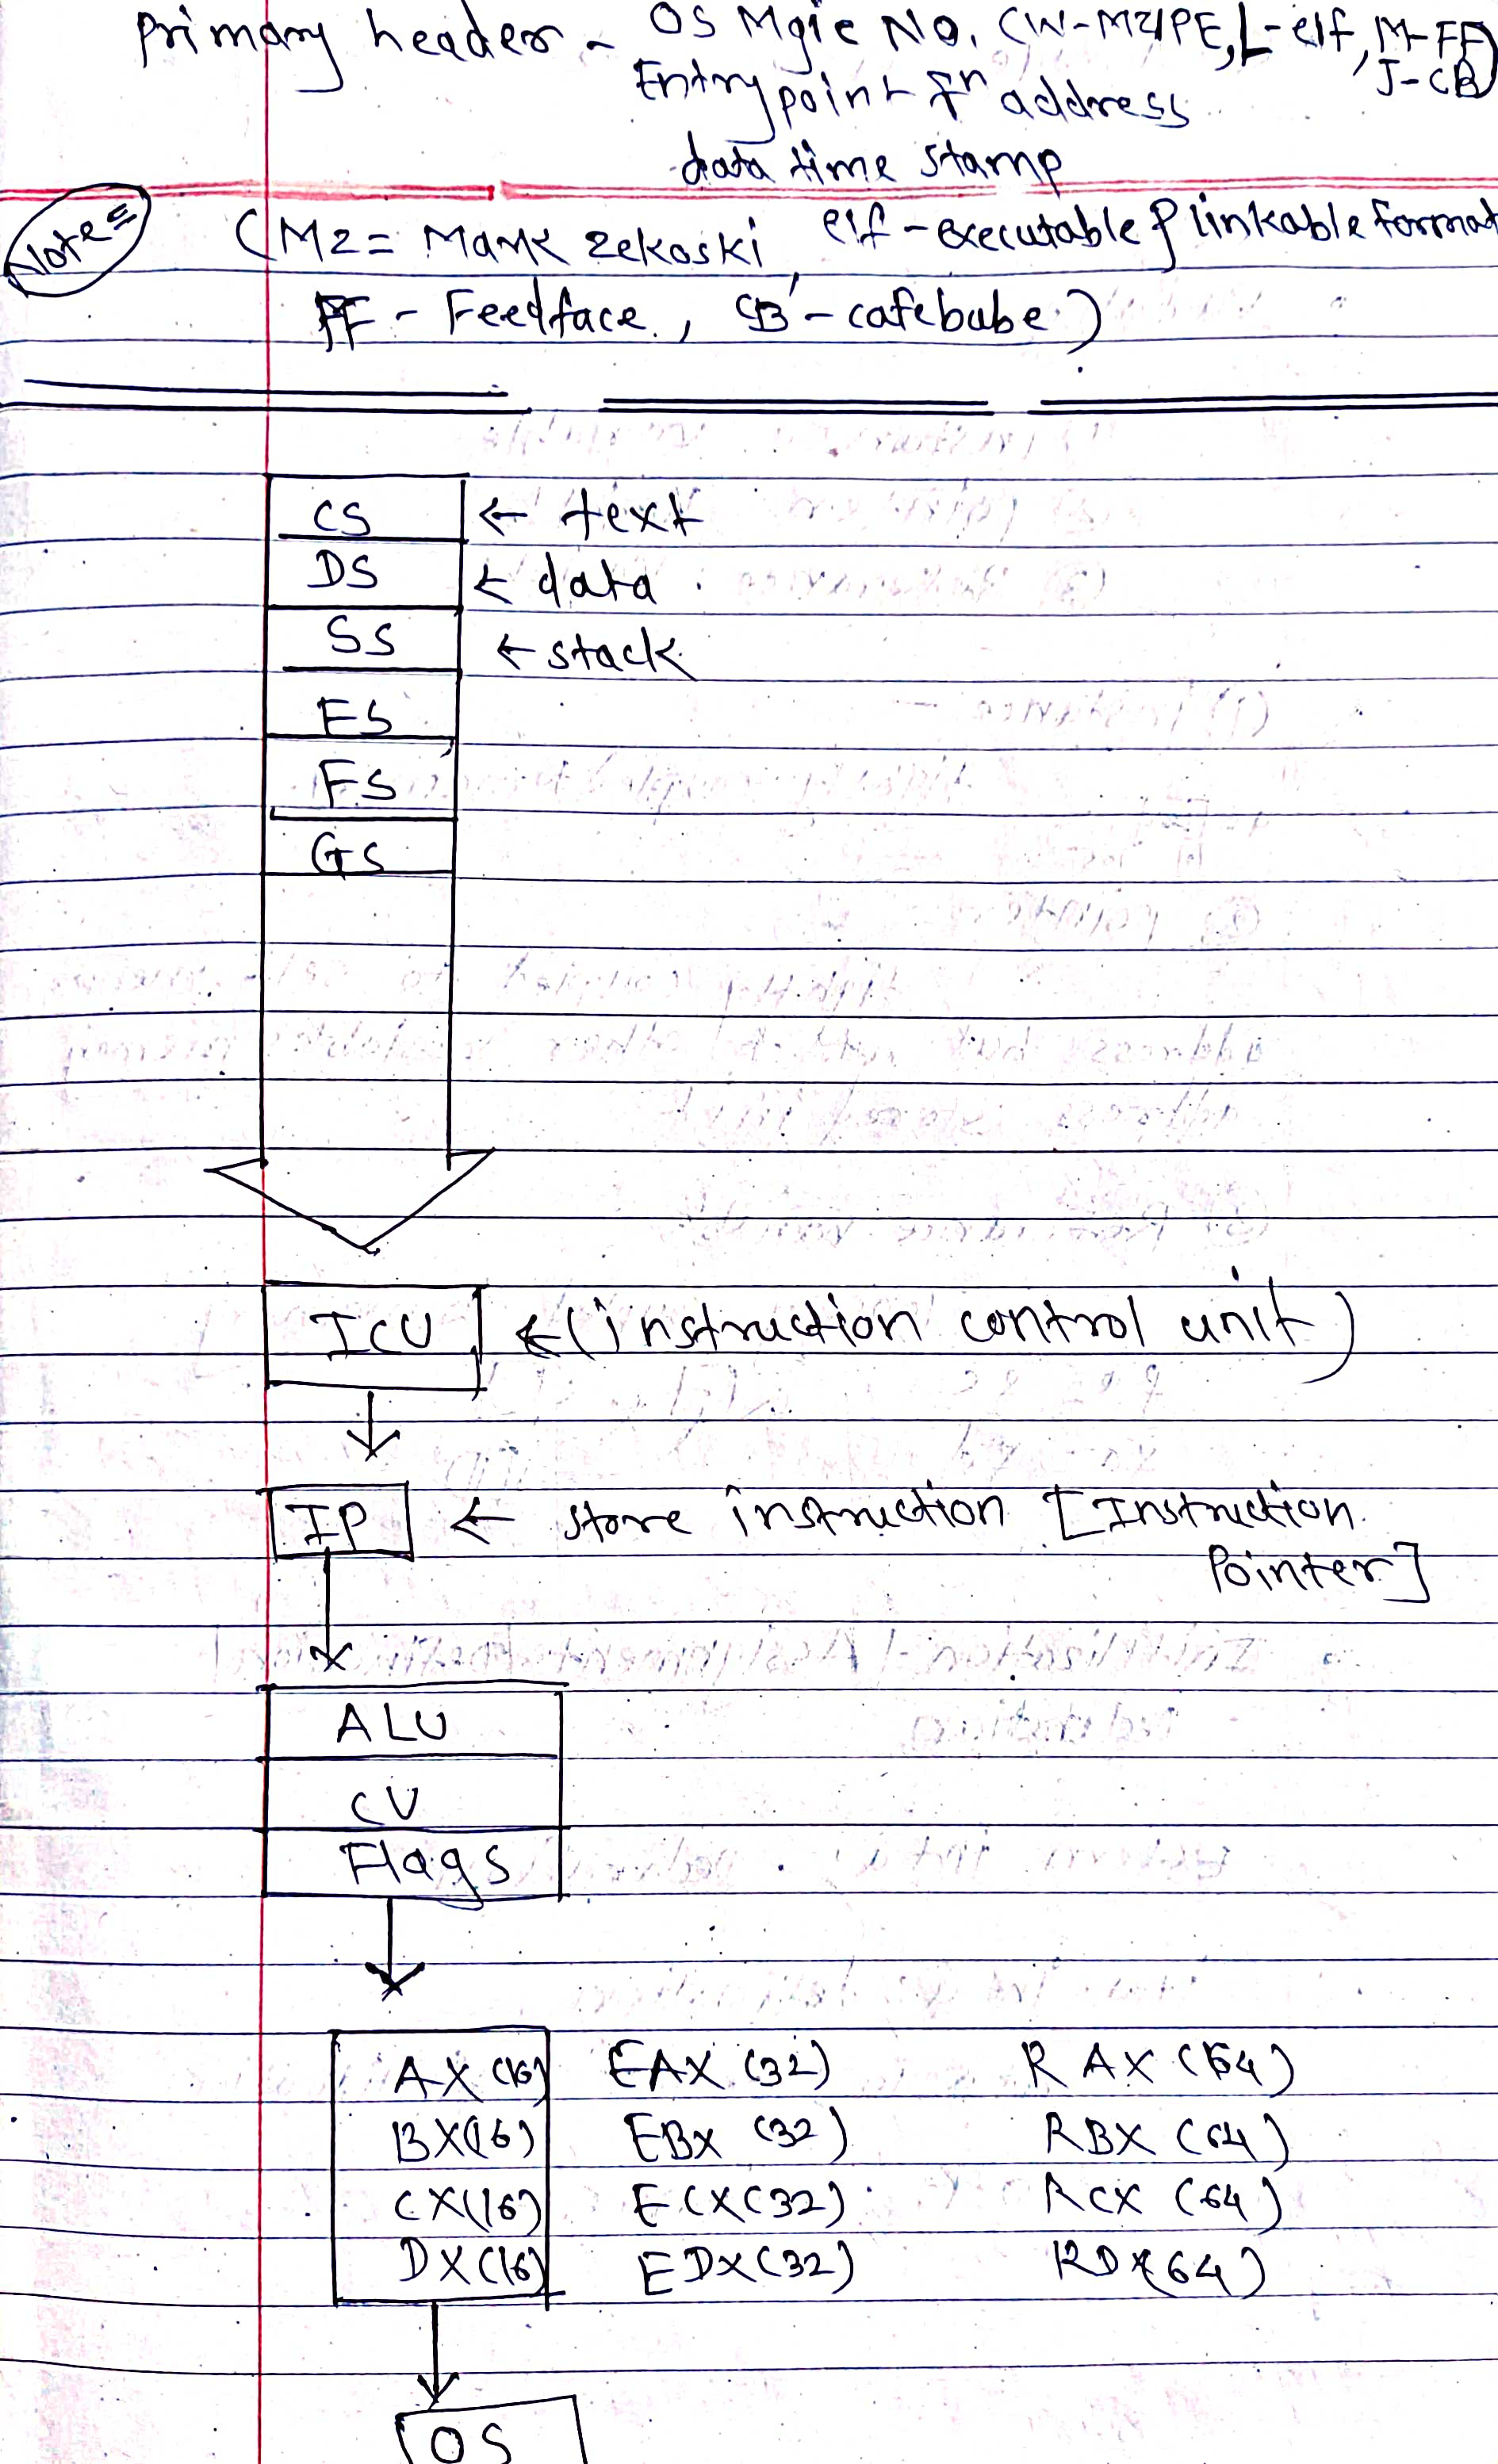 Primary header - OS Mgic No. (W-MZ/PE, L-elf, M-FF
J-CB)
Entry point Fn address
data time stamp
Note =
(MZ = Mark zekoski, elf - executable & linkable format
FF - Feedface, CB - cafebabe)
CS ← text
DS ← data
SS ← stack
ES
FS
GS
ICU ← (instruction control unit)
IP ← store instruction [Instruction
Pointer]
ALU
CU
Flags
AX (16) EAX (32) RAX (64)
BX(16) EBX (32) RBX (64)
CX(16) ECX(32) RCX (64)
DX(16) EDX(32) RDX(64)
OS